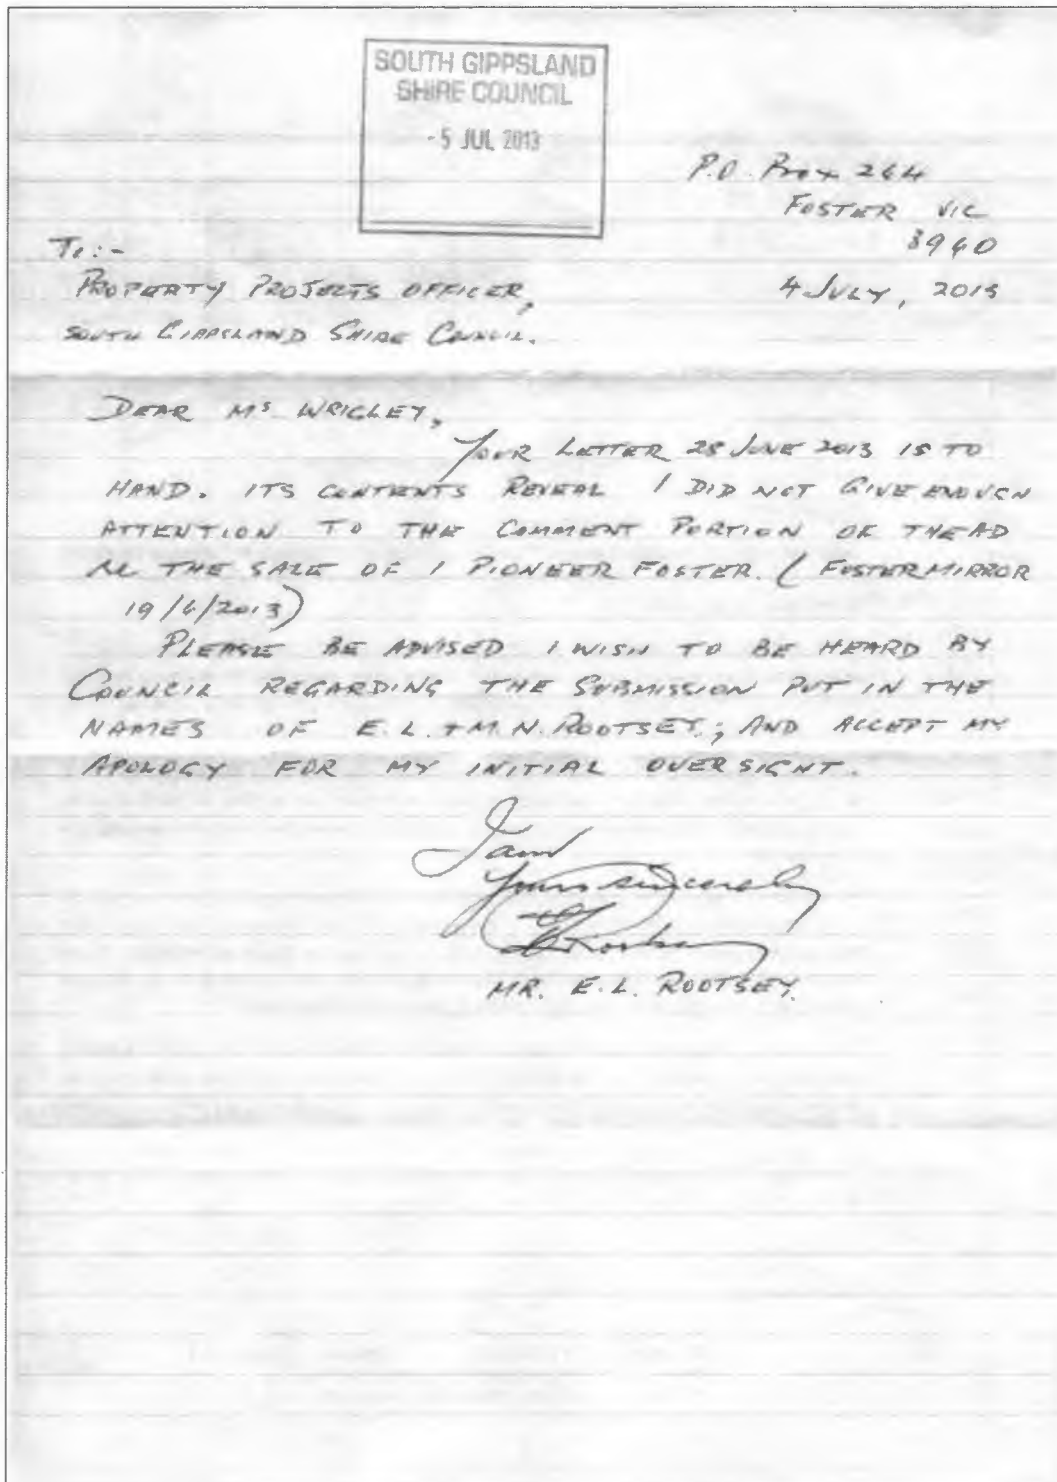 SOUTH GIPPSLAND
SHIRE COUNCIL
- 5 JUL 2013
P.O. Box 264
FOSTER VIC
3960
To:-
PROPERTY PROJECTS OFFICER,
4 JULY, 2013
SOUTH GIPPSLAND SHIRE COUNCIL.
DEAR MS WRIGLEY,
YOUR LETTER 28 JUNE 2013 IS TO
HAND. ITS CONTENTS REVEAL I DID NOT GIVE ENOUGH
ATTENTION TO THE COMMENT PORTION OF THE AD
RE THE SALE OF 1 PIONEER FOSTER. (FOSTER MIRROR
19/6/2013)
PLEASE BE ADVISED I WISH TO BE HEARD BY
COUNCIL REGARDING THE SUBMISSION PUT IN THE
NAMES OF E.L. + M.N. ROOTSEY; AND ACCEPT MY
APOLOGY FOR MY INITIAL OVERSIGHT.
I am
Yours sincerely
MR. E.L. ROOTSEY.